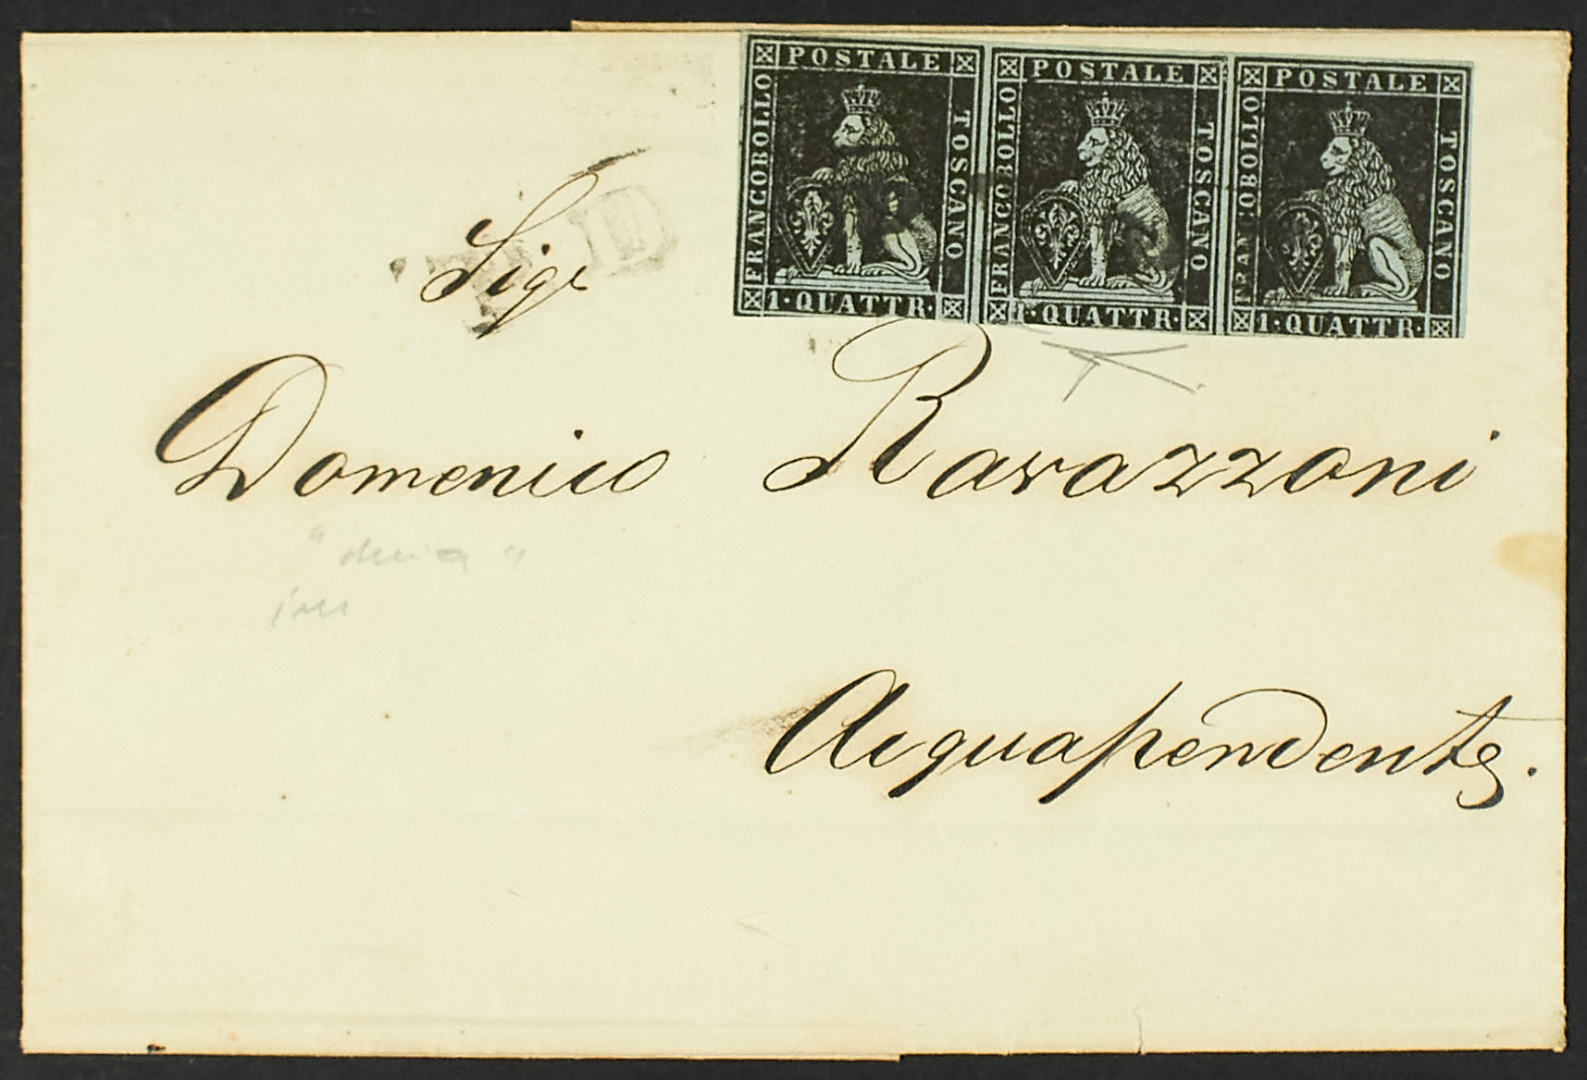 POSTALE
FRANCOBOLLO
TOSCANO
1·QUATTR·
POSTALE
FRANCOBOLLO
TOSCANO
1·QUATTR·
POSTALE
FRANCOBOLLO
TOSCANO
1·QUATTR·
Sigr
Domenico Ravazzoni
Acquapendente.